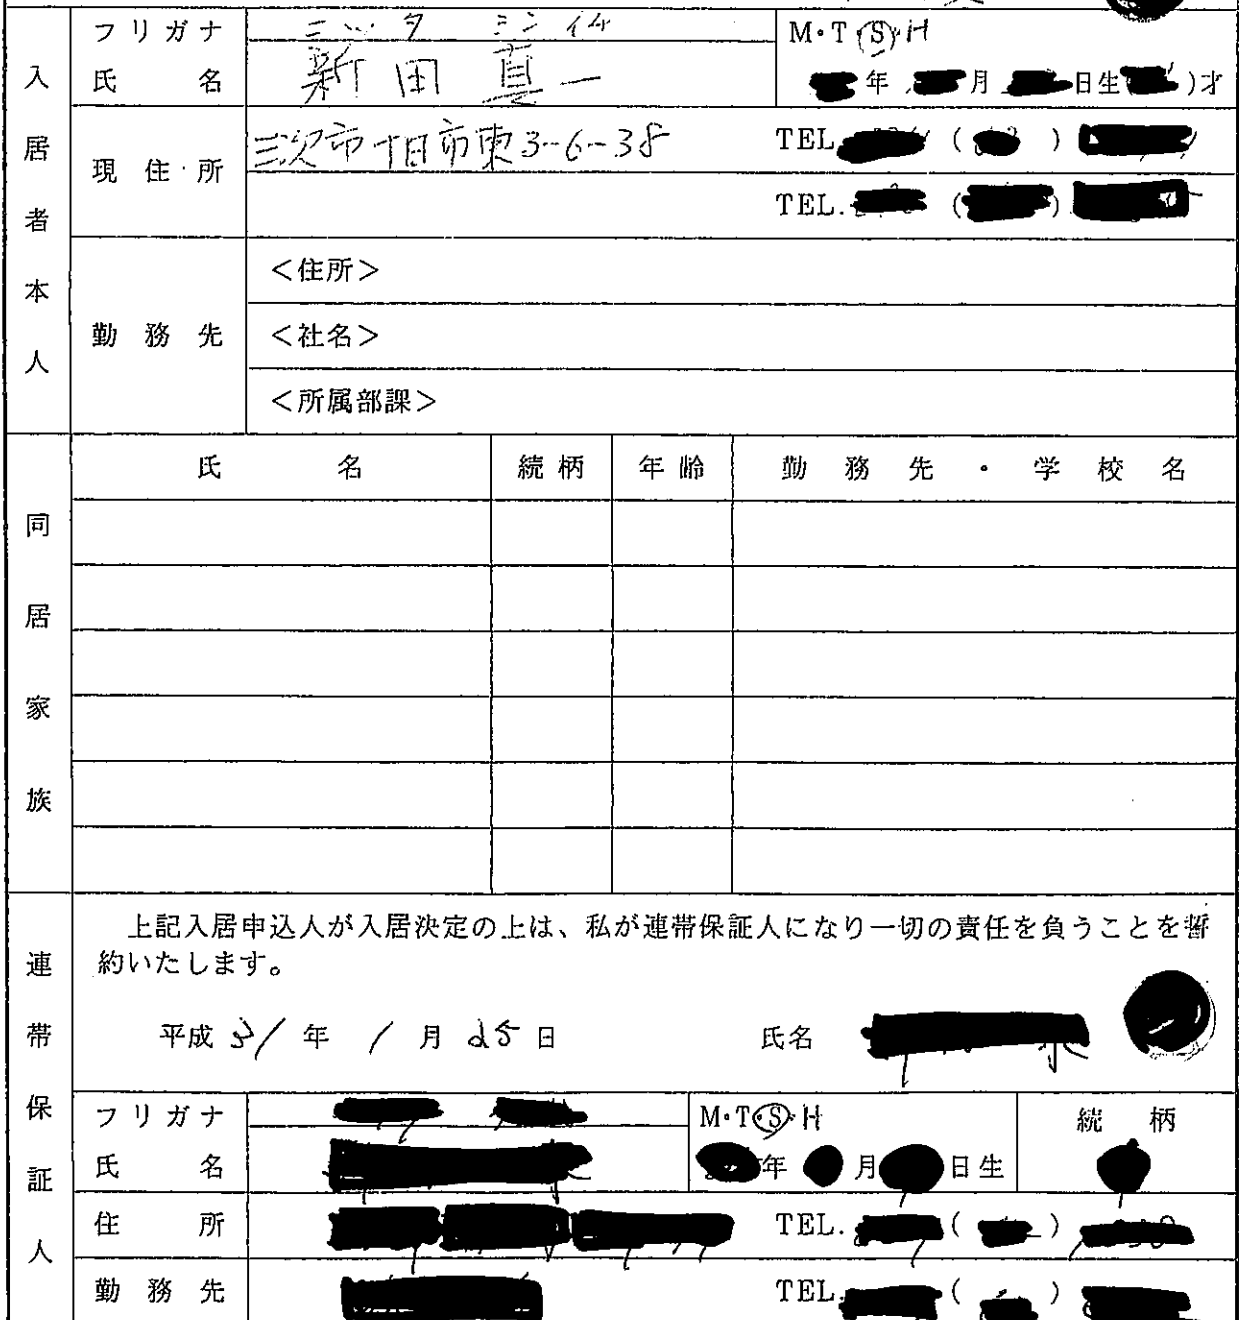 入居者本人
フリガナ ニッタ シンイチ M・T・S・H
氏名 新田 真一 年 月 日生( )才
現住所 三次市十日市東3-6-38 TEL. ( )
TEL. ( )
勤務先 <住所>
<社名>
<所属部課>
同居家族
氏名 続柄 年齢 勤務先・学校名
連帯保証人
上記入居申込人が入居決定の上は、私が連帯保証人になり一切の責任を負うことを誓
約いたします。
平成31年1月25日 氏名
フリガナ M・T・S・H 続柄
氏名 年 月 日生
住所 TEL. ( )
勤務先 TEL. ( )